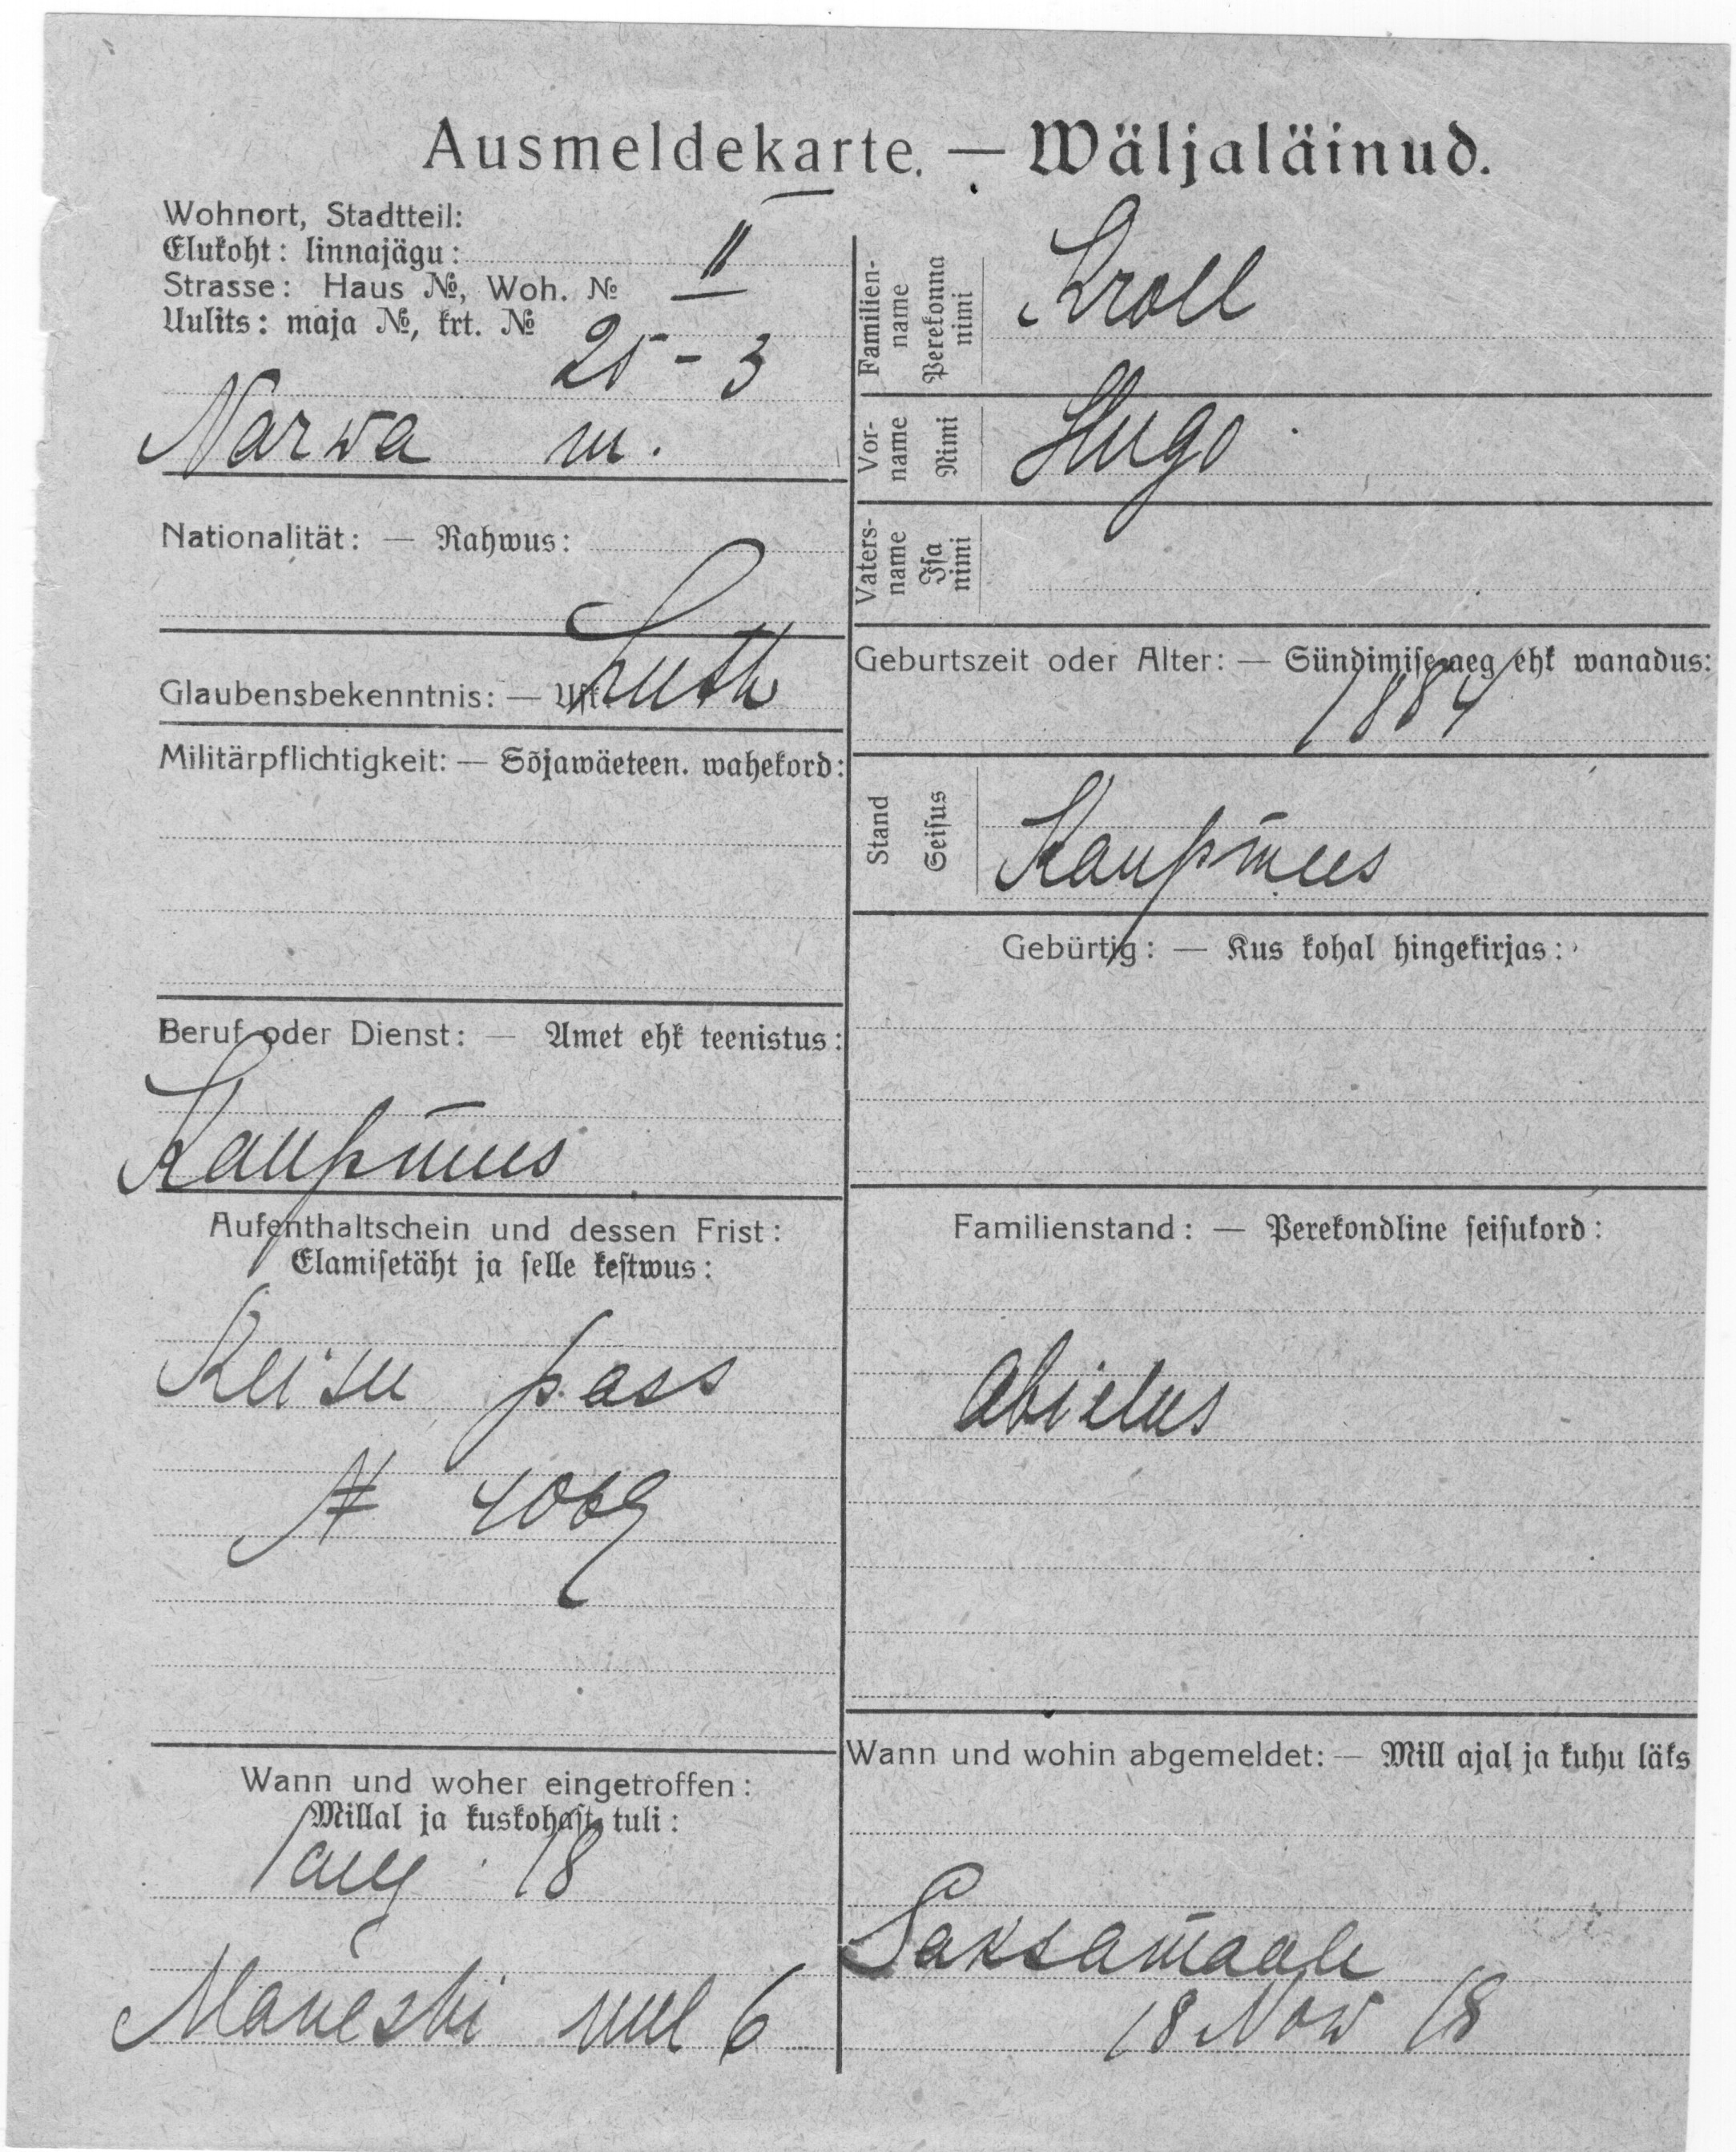 Ausmeldekarte. — Wäljaläinud.
Wohnort, Stadtteil:
Elukoht: linnajägu: II
Strasse: Haus №, Woh. №
Uulits: maja №, krt. №
25 - 3
Narwa m.
Nationalität: — Rahwus:
Glaubensbekenntnis: — Usk Luth
Militärpflichtigkeit: — Sõjawäeteen. wahekord:
Beruf oder Dienst: — Amet ehk teenistus:
Kaupmees
Aufenthaltschein und dessen Frist:
Elamisetäht ja selle kestwus:
Reisu pass
№ 4069
Wann und woher eingetroffen:
Millal ja kuskohast tuli:
1 aug 18
6
Familien-
name
Perekonna
nimi
Kroll
Vor-
name
Nimi
Hugo
Vaters-
name
Isa
nimi
Geburtszeit oder Alter: — Sündimise aeg ehk wanadus:
1884
Stand
Seisus
Kaupmees
Gebürtig: — Kus kohal hingekirjas:
Familienstand: — Perekondline seisukord:
Abielus
Wann und wohin abgemeldet: — Mill ajal ja kuhu läks
Saksamaale
18 Now 18